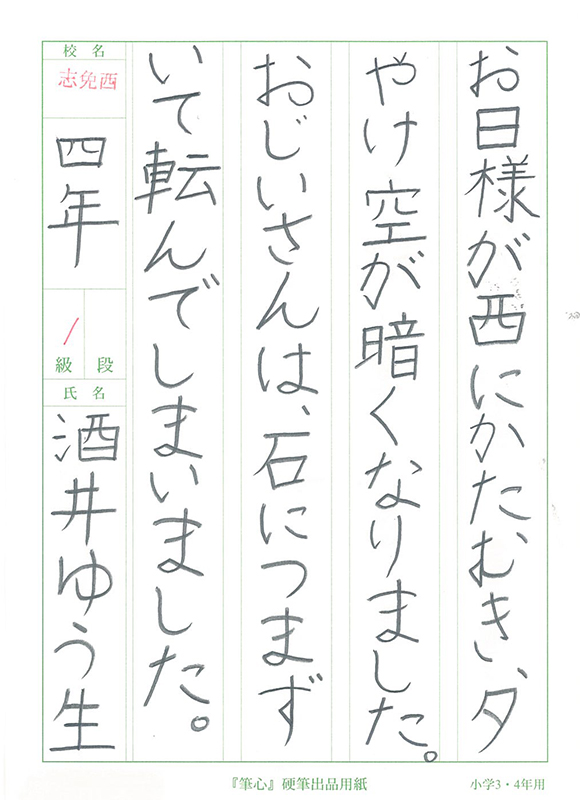 お日様が西にかたむき、夕
やけ空が暗くなりました。
おじいさんは、石につまず
いて転んでしまいました。
校名
志免西
四年
1
級
段
氏名
酒井ゆう生
『筆心』硬筆出品用紙
小学3・4年用